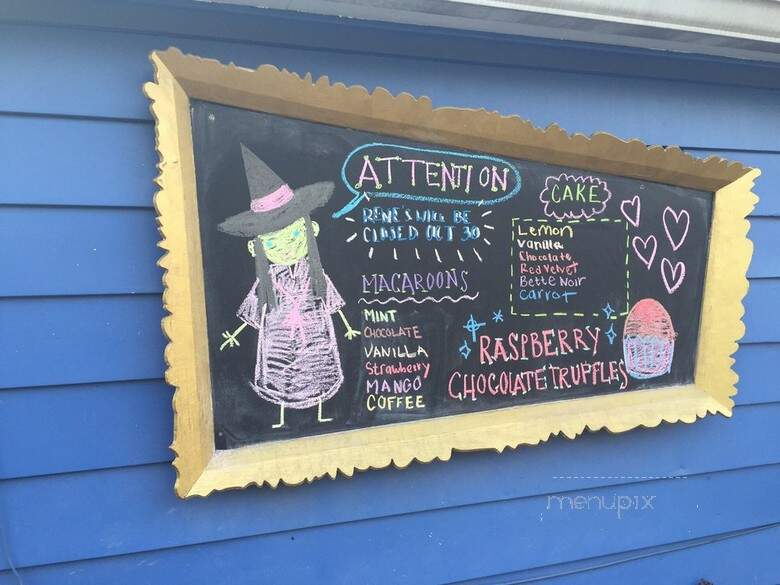 ATTENTION
RENE'S WILL BE
CLOSED OCT 30
MACAROONS
MINT
CHOCOLATE
VANILLA
Strawberry
MANGO
COFFEE
CAKE
Lemon
Vanilla
Chocolate
Red Velvet
Bette Noir
Carrot
RASPBERRY
CHOCOLATE TRUFFLES
menupix